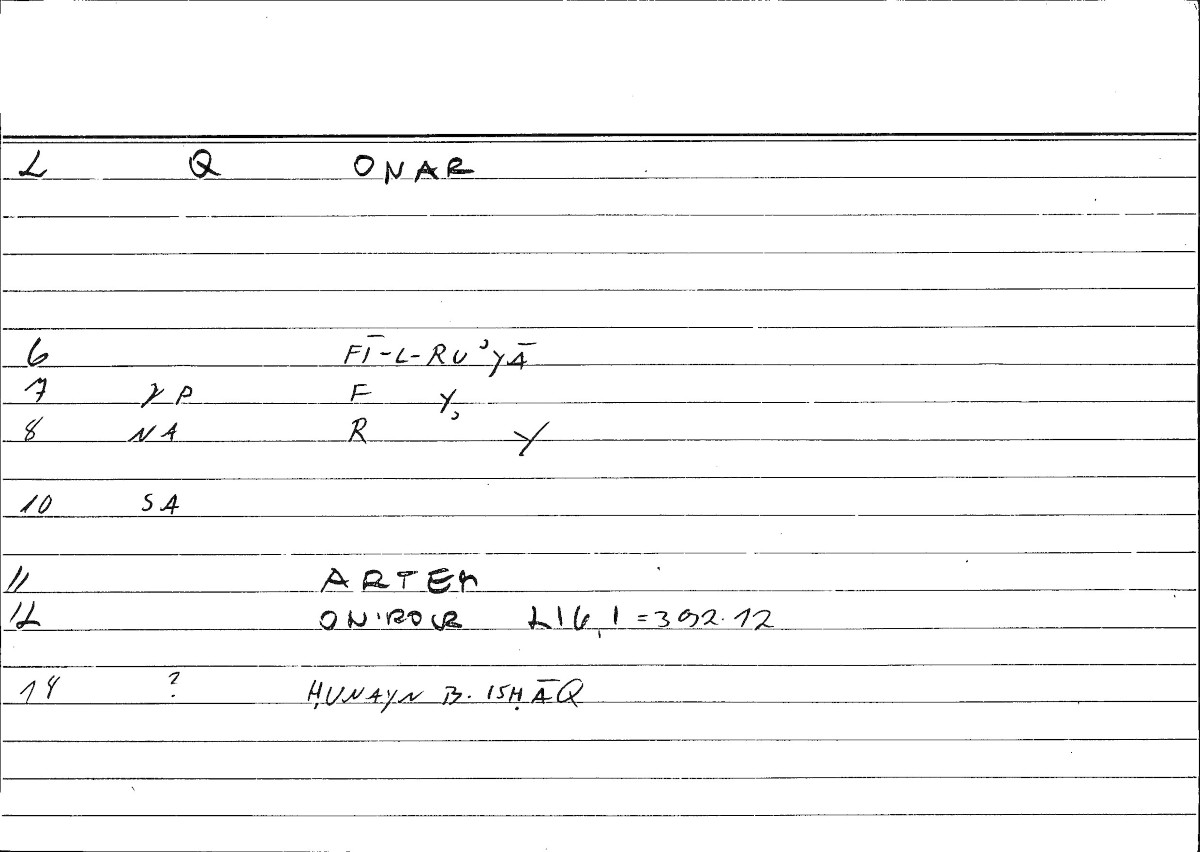 L Q ONAR
6 FĪ-L-RUʾYĀ
7 P F Y,
8 NA R Y
10 SA
11 ARTEM
12 ONIROCR 1 = 392.12
14 ? ḤUNAYN B. ISḤĀQ